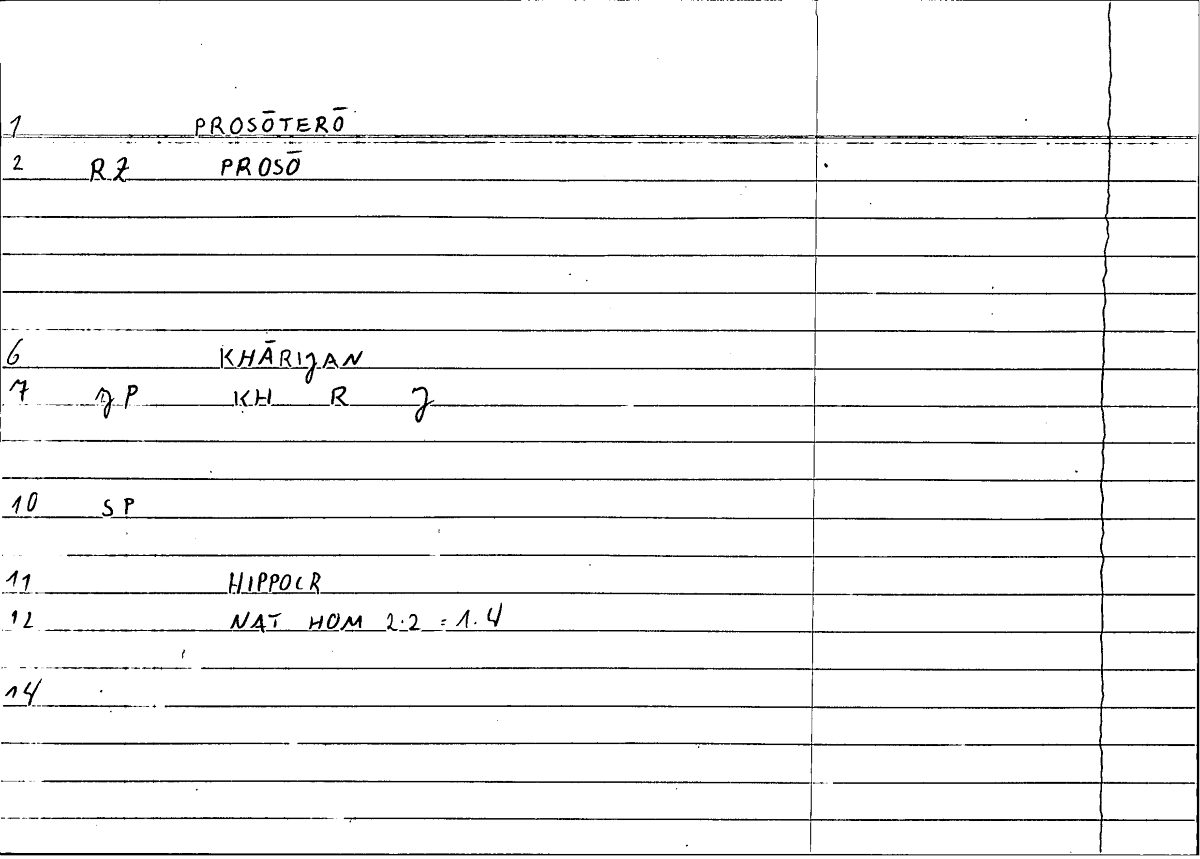 1 PROSŌTERŌ
2 RZ PROSŌ
6 KHĀRIJAN
7 JP KH R J
10 SP
11 HIPPOCR
12 NAT HOM 2.2 = 1.4
14